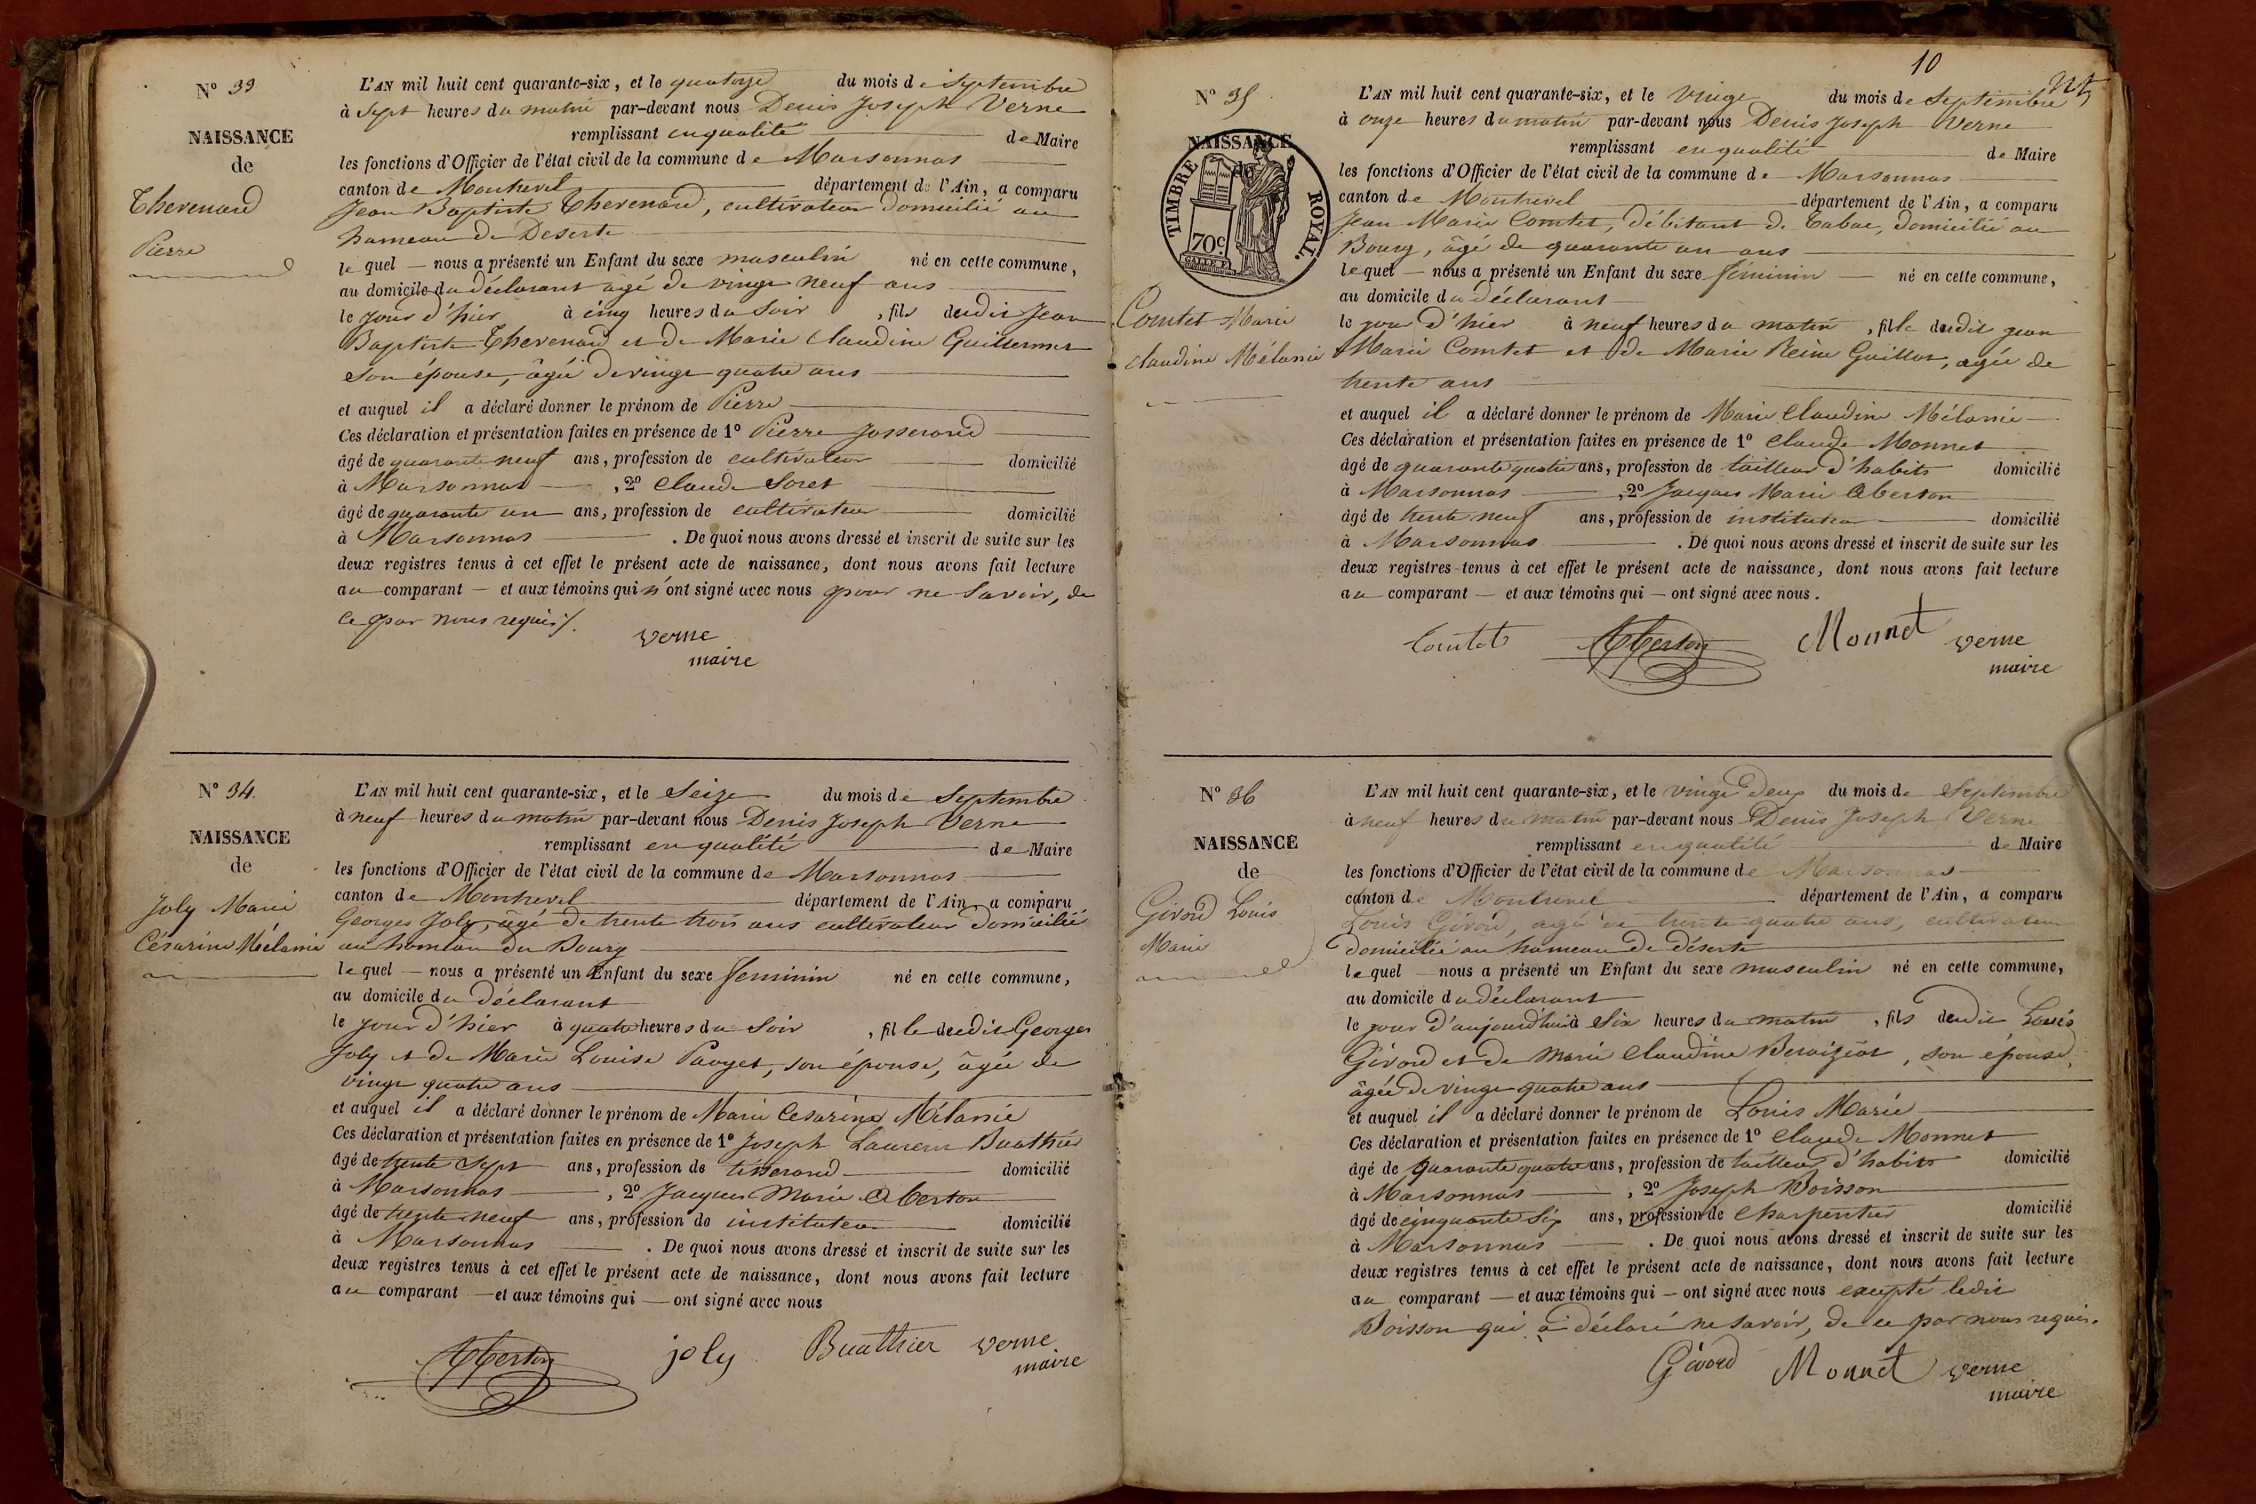 N° 33
NAISSANCE
de
Thevenard
Pierre
L'AN mil huit cent quarante-six, et le quatorze du mois de Septembre
à Sept heures du matin par-devant nous Denis Joseph Verne
remplissant en qualité de Maire
les fonctions d'Officier de l'état civil de la commune de Marsonnas
canton de Montrevel département de l'Ain, a comparu
Jean Baptiste Thevenard, cultivateur domicilié au
hameau de Deserte
lequel nous a présenté un Enfant du sexe masculin né en cette commune,
au domicile du déclarant âgé de vingt neuf ans
le jour d'hier à cinq heures du Soir, fils dudit Jean
Baptiste Thevenard et de Marie Claudine Guillermet
son épouse, âgée de vingt quatre ans
et auquel il a déclaré donner le prénom de Pierre
Ces déclaration et présentation faites en présence de 1° Pierre Josserand
âgé de quarante neuf ans, profession de cultivateur domicilié
à Marsonnas, 2° Claude Soret
âgé de quarante un ans, profession de cultivateur domicilié
à Marsonnas. De quoi nous avons dressé et inscrit de suite sur les
deux registres tenus à cet effet le présent acte de naissance, dont nous avons fait lecture
au comparant et aux témoins qui n'ont signé avec nous pour ne Savoir, de
ce par nous requis/.
Verne
maire
N° 34.
NAISSANCE
de
Joly Marie
Césarine Mélanie
L'AN mil huit cent quarante-six, et le Seize du mois de Septembre
à neuf heures du matin par-devant nous Denis Joseph Verne
remplissant en qualité de Maire
les fonctions d'Officier de l'état civil de la commune de Marsonnas
canton de Montrevel département de l'Ain, a comparu
Georges Joly, âgé de trente trois ans cultivateur domicilié
au hameau du Bourg
lequel nous a présenté un Enfant du sexe feminin né en cette commune,
au domicile du déclarant
le jour d'hier à quatre heures du Soir, fille dudit Georges
Joly et de Marie Louise Pauget, son épouse, âgée de
vingt quatre ans
et auquel il a déclaré donner le prénom de Marie Cesarine Mélanie
Ces déclaration et présentation faites en présence de 1° Joseph Laurent Buathier
âgé de trente Sept ans, profession de tisserand domicilié
à Marsonnas, 2° Jacques Marie Aberton
âgé de trente neuf ans, profession de instituteur domicilié
à Marsonnas. De quoi nous avons dressé et inscrit de suite sur les
deux registres tenus à cet effet le présent acte de naissance, dont nous avons fait lecture
au comparant et aux témoins qui ont signé avec nous
Aberton joly Buathier Verne
maire
10
N° 35
NAISSANCE
TIMBRE ROYAL.
70c
Comtet Marie
Claudine Mélanie
L'AN mil huit cent quarante-six, et le vingt du mois de Septembre
à onze heures du matin par-devant nous Denis Joseph Verne
remplissant en qualité de Maire
les fonctions d'Officier de l'état civil de la commune de Marsonnas
canton de Montrevel département de l'Ain, a comparu
Jean Marie Comtet, débitant de Tabac, domicilié au
Bourg, âgé de quarante un ans
lequel nous a présenté un Enfant du sexe féminin né en cette commune,
au domicile du déclarant
le jour d'hier à neuf heures du matin, fille dudit jean
Marie Comtet et de Marie Reine Guillot, agée de
trente ans
et auquel il a déclaré donner le prénom de Marie Claudine Mélanie
Ces déclaration et présentation faites en présence de 1° Claude Monnet
âgé de quarante quatre ans, profession de tailleur d'habits domicilié
à Marsonnas, 2° Jacques Marie Aberton
âgé de trente neuf ans, profession de instituteur domicilié
à Marsonnas. De quoi nous avons dressé et inscrit de suite sur les
deux registres tenus à cet effet le présent acte de naissance, dont nous avons fait lecture
au comparant et aux témoins qui ont signé avec nous.
Comtet Aberton Monnet Verne
maire
N° 36
NAISSANCE
de
Girord Louis
Marie
L'AN mil huit cent quarante-six, et le vingt deux du mois de Septembre
à neuf heures du matin par-devant nous Denis Joseph Verne
remplissant en qualité de Maire
les fonctions d'Officier de l'état civil de la commune de Marsonnas
canton de Montrevel département de l'Ain, a comparu
Louis Girord, agé de trente quatre ans, cultivateur
domicilié au hameau de déserte
lequel nous a présenté un Enfant du sexe masculin né en cette commune,
au domicile du déclarant
le jour d'aujourd'hui à Six heures du matin, fils dudit Louis
Girord et de Marie Claudine Bervizot, son épouse,
âgée de vingt quatre ans
et auquel il a déclaré donner le prénom de Louis Marie
Ces déclaration et présentation faites en présence de 1° Claude Monnet
âgé de quarante quatre ans, profession de tailleur d'habits domicilié
à Marsonnas, 2° Joseph Boisson
âgé de cinquante Six ans, profession de Charpentier domicilié
à Marsonnas. De quoi nous avons dressé et inscrit de suite sur les
deux registres tenus à cet effet le présent acte de naissance, dont nous avons fait lecture
au comparant et aux témoins qui ont signé avec nous excepté ledit
Boisson qui a déclaré ne savoir, de ce par nous requis.
Girord Monnet Verne
maire